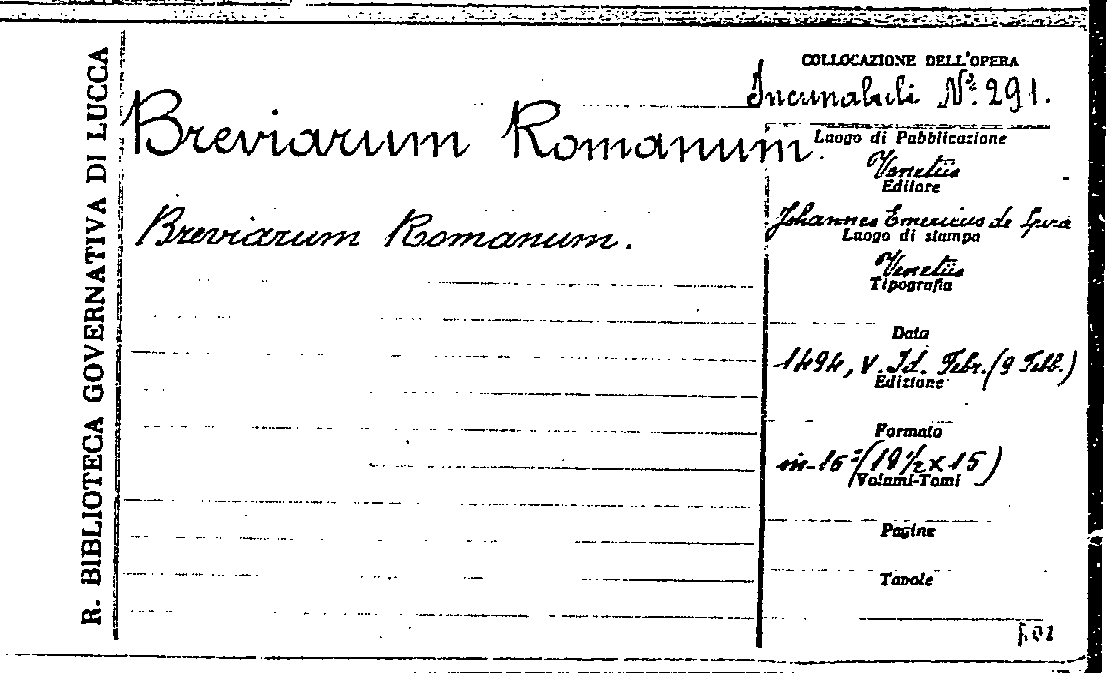 R. BIBLIOTECA GOVERNATIVA DI LUCCA
COLLOCAZIONE DELL'OPERA
Incunabuli Nº. 291.
Breviarum Romanum.
Breviarum Romanum.
Luogo di Pubblicazione
Venetiis
Editore
Johannes Emericus de Spira
Luogo di stampa
Venetiis
Tipografia
Data
1494, V. Id. Febr. (9 Febb.)
Edizione
Formato
in-16º (10½ x 15)
Volami-Tomi
Pagine
Tavole